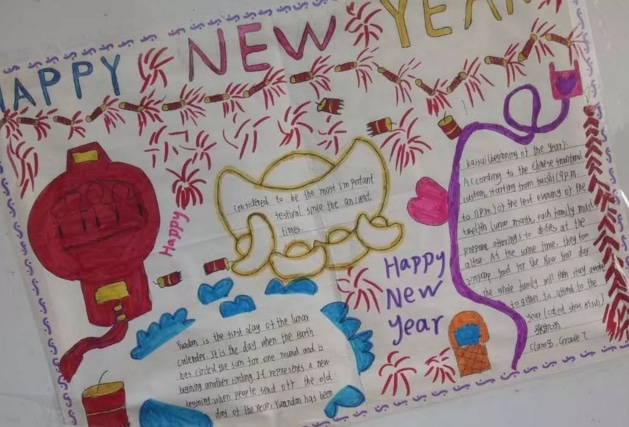 HAPPY NEW YEAR
Happy
considered to be the most important
festival since the ancient
times.
Happy
New
Year
Yuandan is the first day of the lunar
calender. It is the day when the earth
has circled the sun for one round and is
begining another circling. It represents a new
beginning when people send off the old
day of the year. Yuandan has been
kaisui (beginning of the year):
According to the chinese traditional
custom, starting from haishi (9 p.m.
to 11 p.m.) of the last evening of the
twelfth lunar month, each family must
prepare offerings to deities at the
altar. At the same time, they
food for the New Year day.
the whole family will then stay
to attend to the
year (called
Class 3, Grade 7